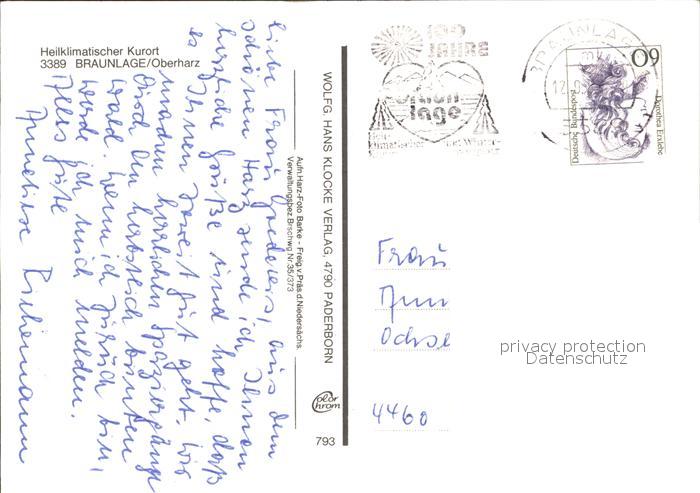 Heilklimatischer Kurort
3389 BRAUNLAGE/Oberharz
Liebe Frau aus dem
schönen Harz sende ich Ihnen
herzliche Grüße und hoffe, daß
es Ihnen soweit gut geht. Wir
machen herrlichen Spaziergänge
durch den herbstlich bunten
Wald. Wenn ich zurück bin,
werde ich mich melden.
Alles Gute
Anneliese
Aufn.Harz-Foto Barke - Freig.v.Präs.d.Niedersächs.
Verwaltungsbez.Brschwg Nr.35/373
WOLFG. HANS KLOCKE VERLAG, 4790 PADERBORN
Color
chrom
793
100
JAHRE
lage
BRAUNLAGE
60
Deutsche Bundespost
Dorothea Erxleben
Frau
Ochse
4460
privacy protection
Datenschutz